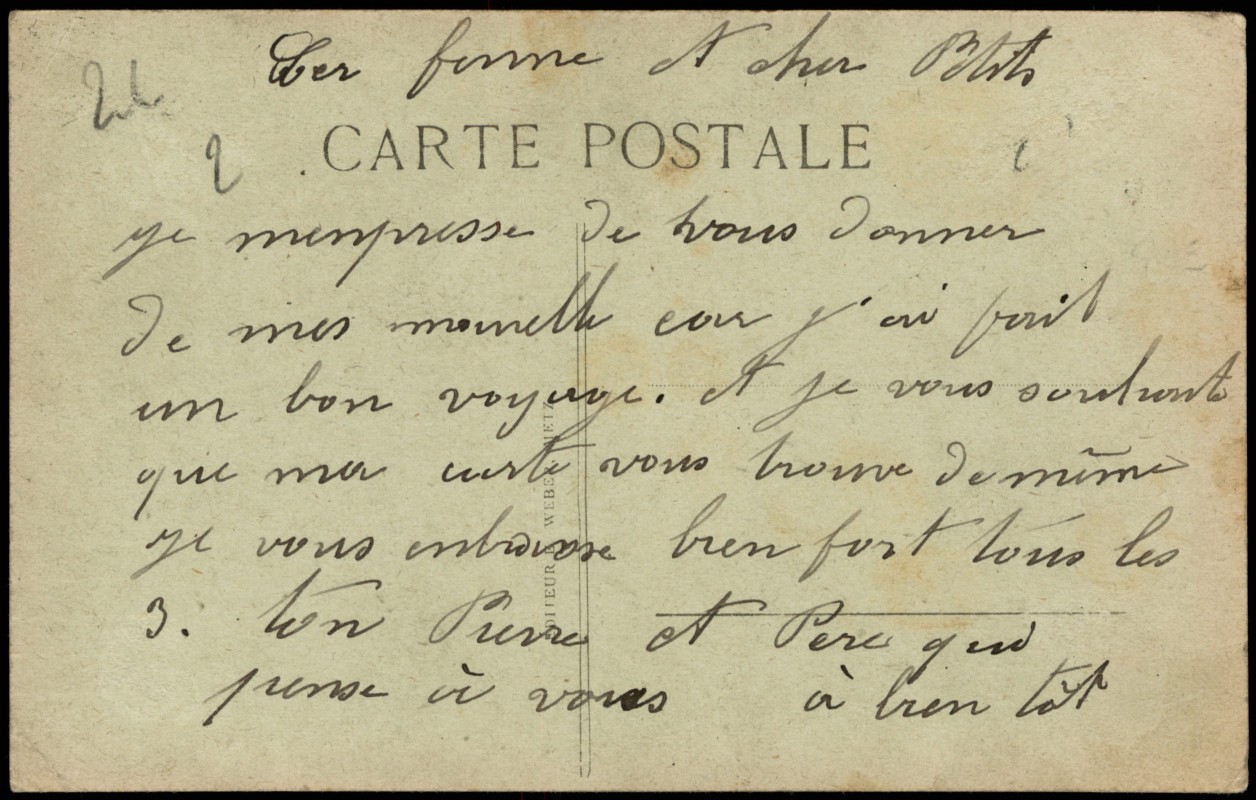 Cher femme et cher Ptits
22
2
CARTE POSTALE
je m'enpresse de vous donner
de mes nouvelle car j'ai fait
un bon voyage. et je vous souhaite
que ma carte vous trouve de même
je vous enbrasse bien fort tous les
3. ton Pierre et Pere qui
pense à vous à bien tôt
EDITEUR WEBER METZ